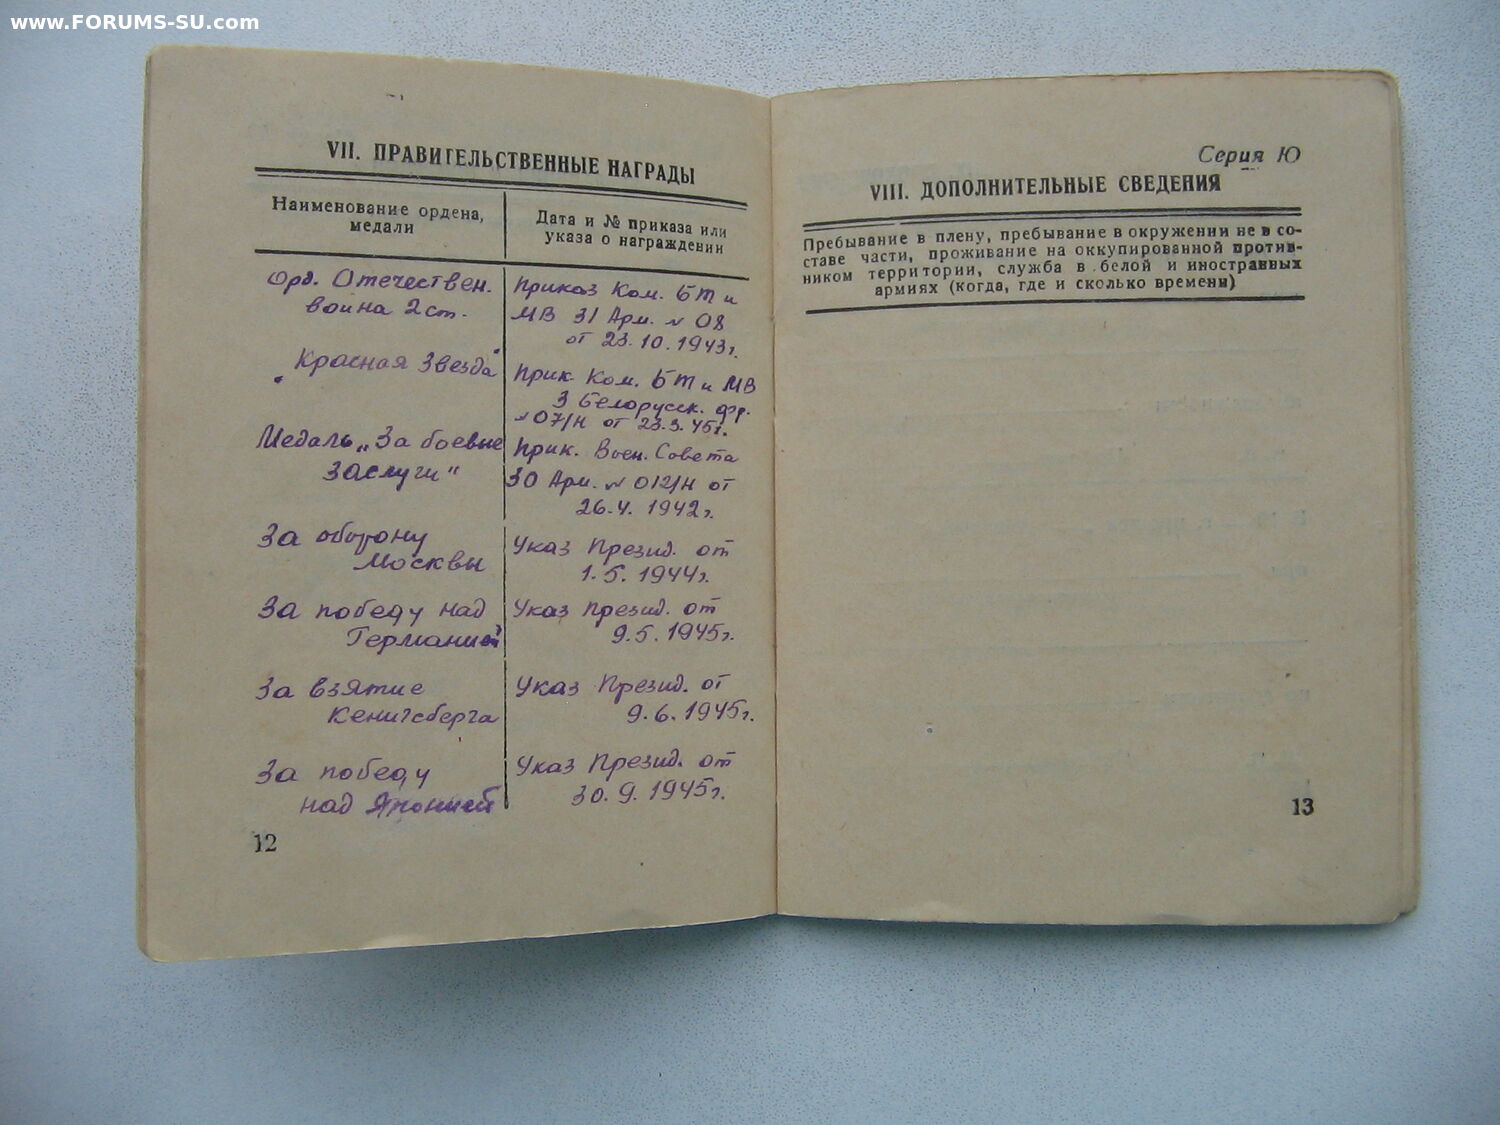 www.FORUMS-SU.com
VII. ПРАВИТЕЛЬСТВЕННЫЕ НАГРАДЫ
Наименование ордена,
медали
Дата и № приказа или
указа о награждении
Орд. Отечествен.
война 2 ст.
Приказ Ком. БТ и
МВ 31 Арм. № 08
от 23.10.1943г.
"Красная Звезда"
Прик. Ком. БТ и МВ
3 Белорусск. фр.
№ 07/н от 23.3.45г.
Медаль „За боевые
заслуги"
Прик. Воен. Совета
30 Арм. № 012/н от
26.4.1942г.
За оборону
Москвы
Указ Презид. от
1.5.1944г.
За победу над
Германией
Указ Презид. от
9.5.1945г.
За взятие
Кенигсберга
Указ Презид. от
9.6.1945г.
За победу
над Японией
Указ Презид. от
30.9.1945г.
12
Серия Ю
VIII. ДОПОЛНИТЕЛЬНЫЕ СВЕДЕНИЯ
Пребывание в плену, пребывание в окружении не в со-
ставе части, проживание на оккупированной против-
ником территории, служба в белой и иностранных
армиях (когда, где и сколько времени)
13